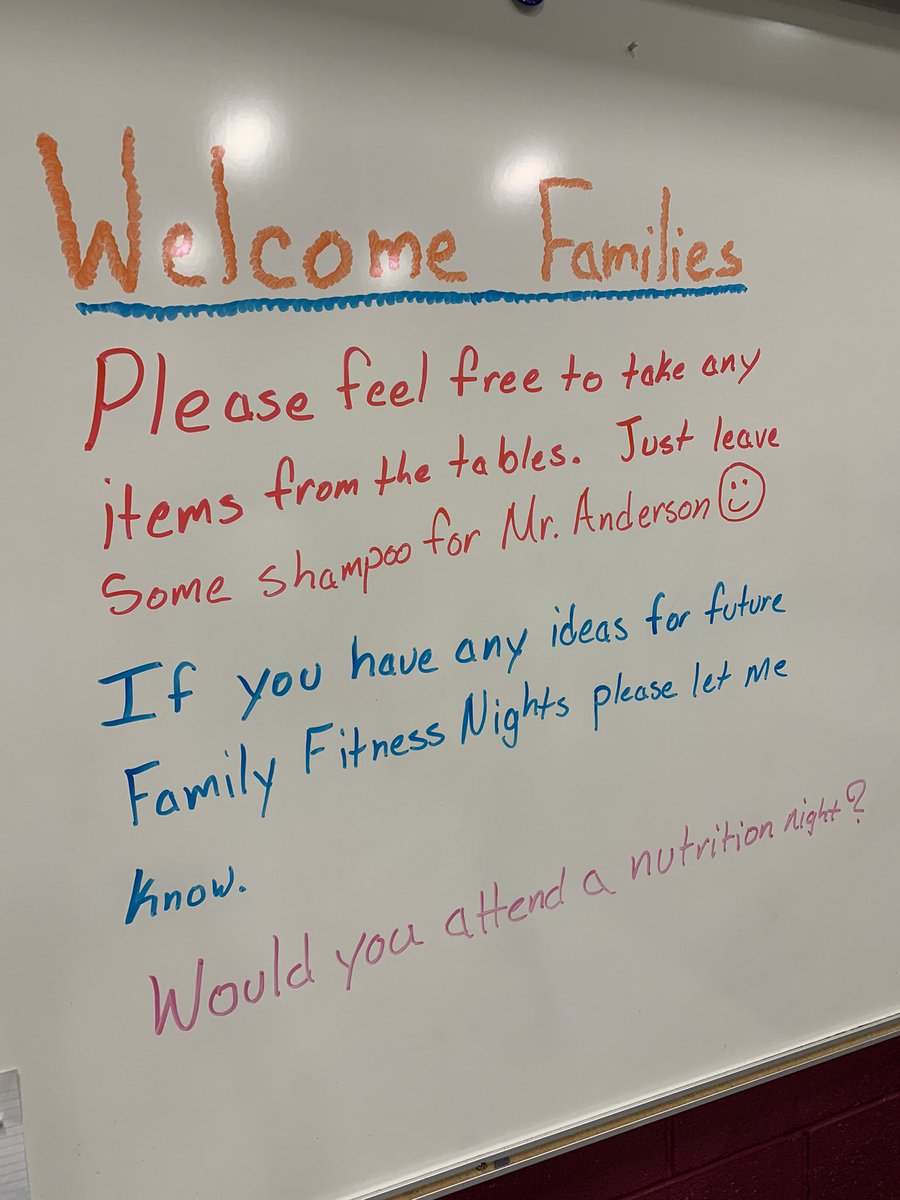 Welcome Families
Please feel free to take any
items from the tables. Just leave
Some shampoo for Mr. Anderson
If you have any ideas for future
Family Fitness Nights please let me
know.
Would you attend a nutrition night?